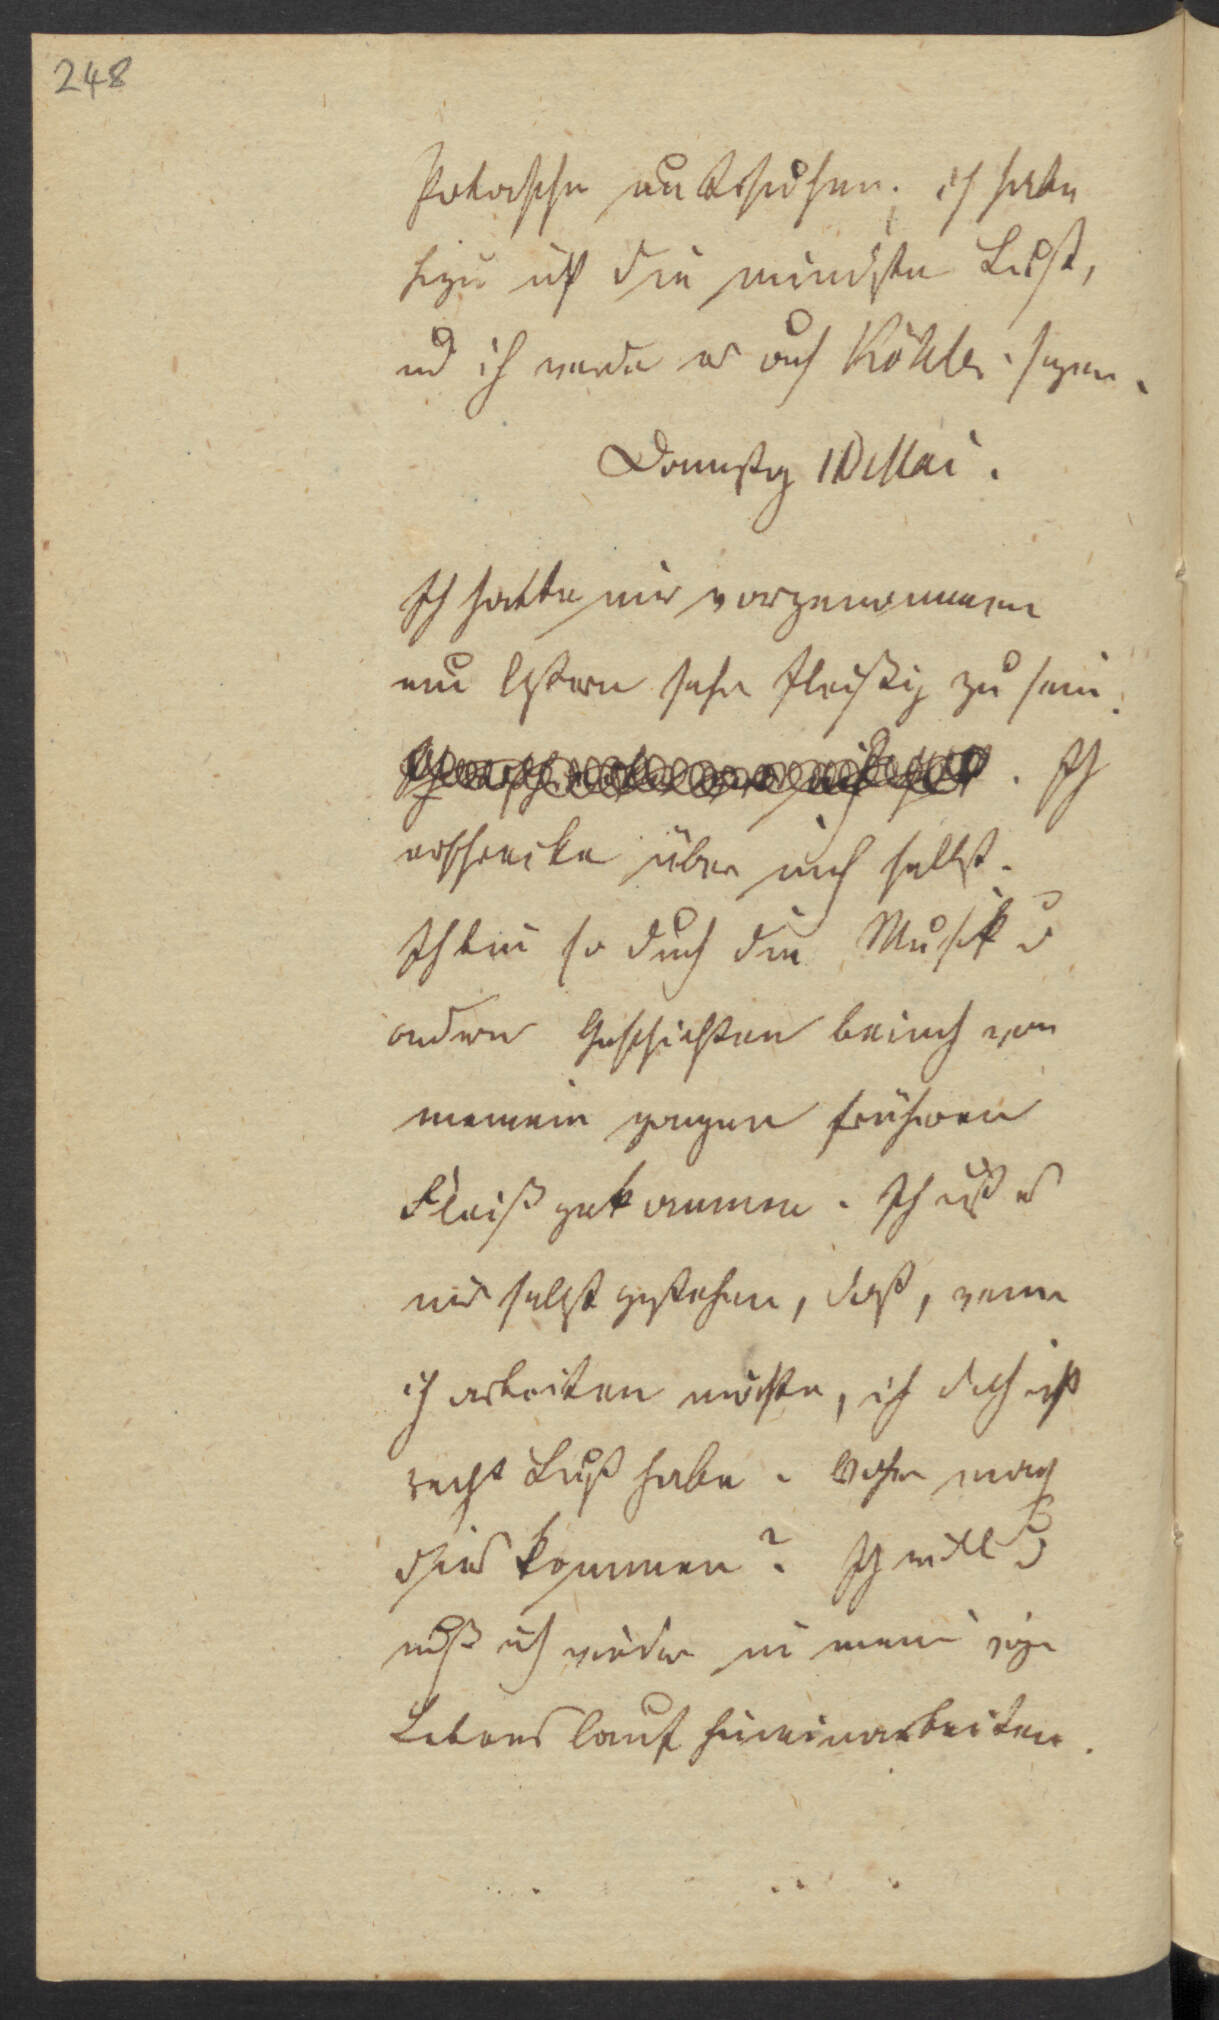 248
ich habe
hizu nicht die mindste Lust,
und ich werde es auch Köhler sagen.
Donnstg 10 Mai.
Ich hatte mir vorgenommen
nun Ostern sehr fleißig zu sein.
Ich
erschrecke über mich selbst.
Ich bin so durch die Musik u
andere Geschichten beinah von
meinem ganzen früheren
Fleiß gekommen. Ich muß es
mir selbst gestehen, daß, wenn
ich arbeiten möchte, ich doch nicht
recht Lust habe. Woher mag
dies kommen? Ich will u
muß mich wieder in meine vorige
Lebenslauf hineinarbeiten.